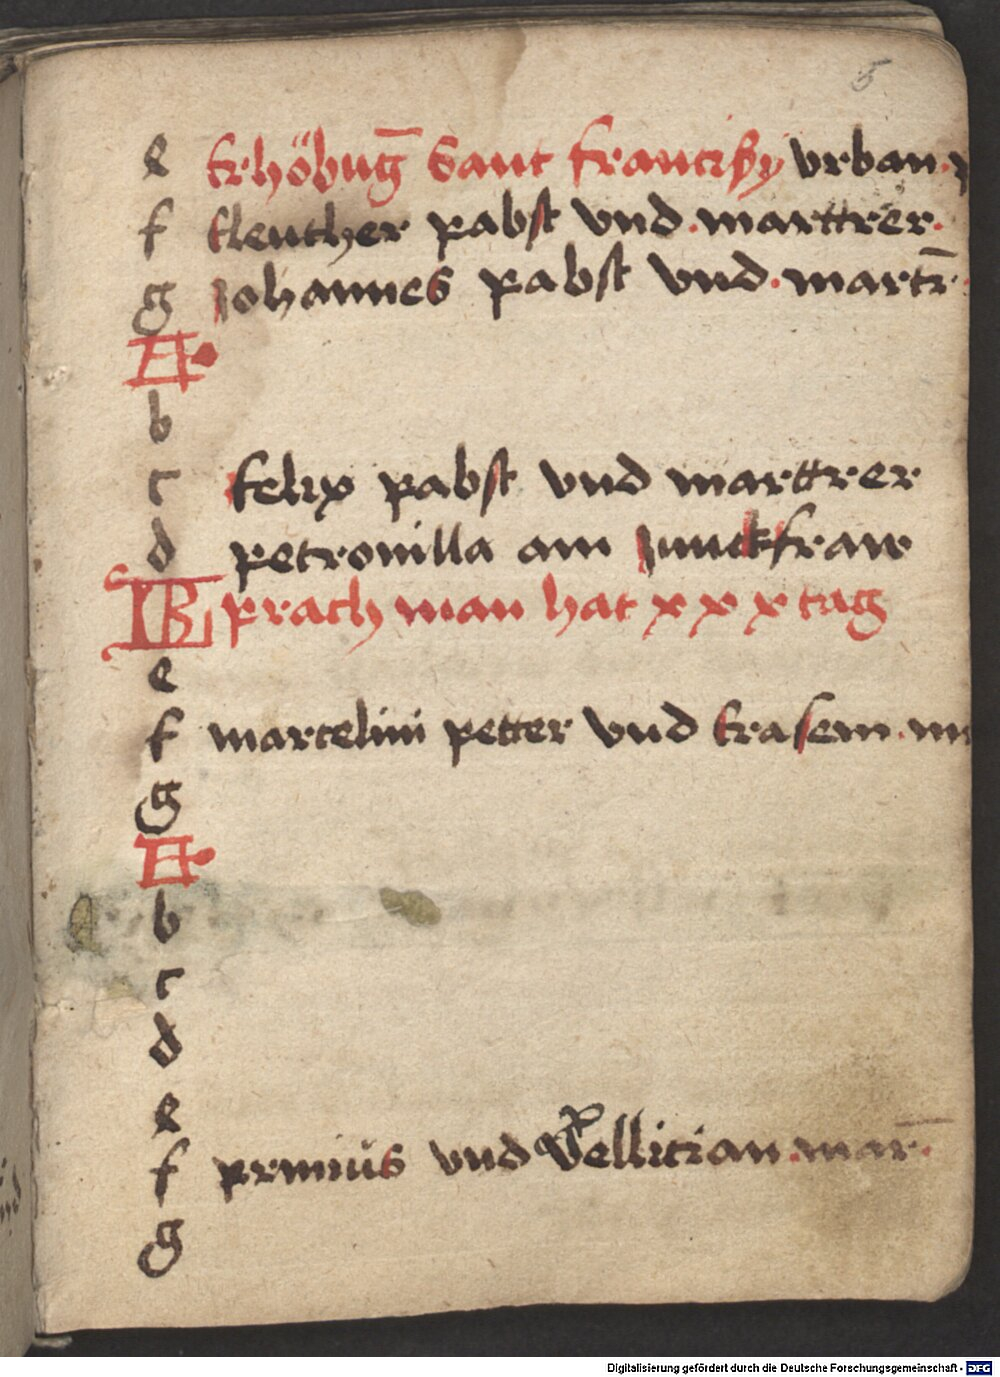 5
e Erhöbug̅ Sant francisy vrban
f Eleuther pabst vnd marttrer
g Johannes pabst vnd martr̅
A
b
c felix pabst vnd marttrer
d petronilla am junckfraw
KL prach man hat xxx tag
e
f marcelini petter vnd Erasem
g
A
b
c
d
e
f prmius vnd Vellician mar̅
g
Digitalisierung gefördert durch die Deutsche Forschungsgemeinschaft - DFG